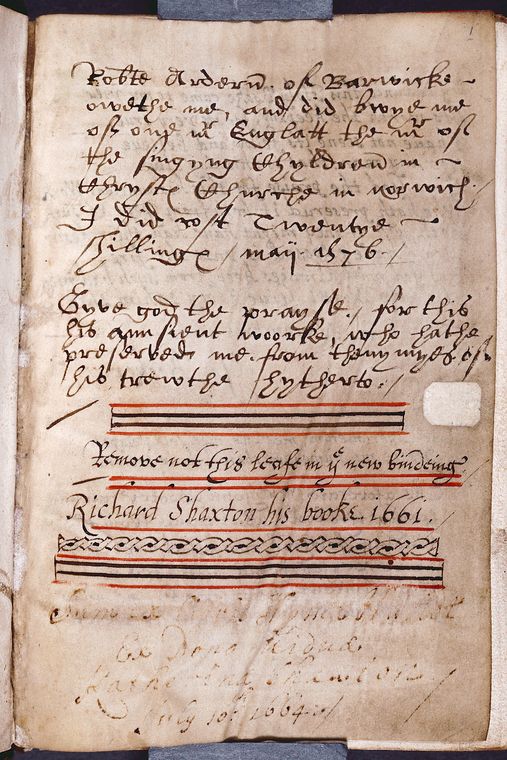 1
Robte Ardern of Barwicke
owethe me, and did bwye me
of one mr Englatt the mr of
the singyng Chyldren in
Chryst Churche in norwich /
I did cost Twentye
shilling / maij 1576. /
Gyve god the prayse. / for this
his aunsient woorke, who hathe
preserved me from thenymyes of
his trewthe hytherto. /
Remove not this leafe in ye new bindeing
Richard Shaxton his booke 1661.
Ex Dono Viduæ
Katherina Shaxton
July 10: 1664